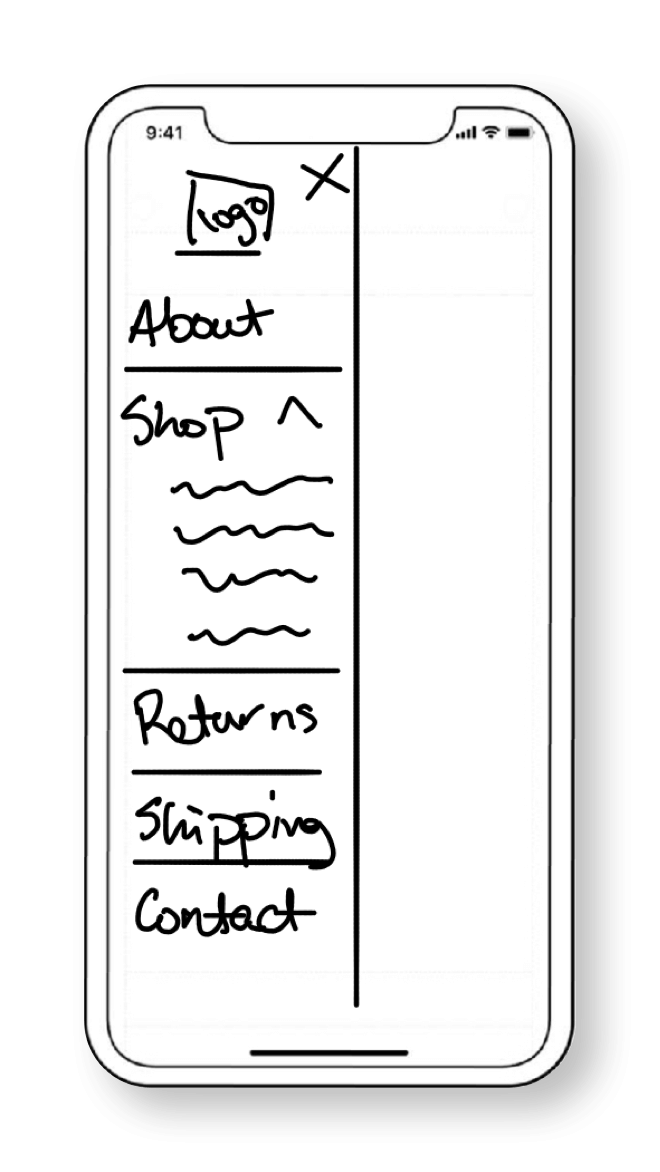 9:41
logo
About
Shop
Returns
Shipping
Contact